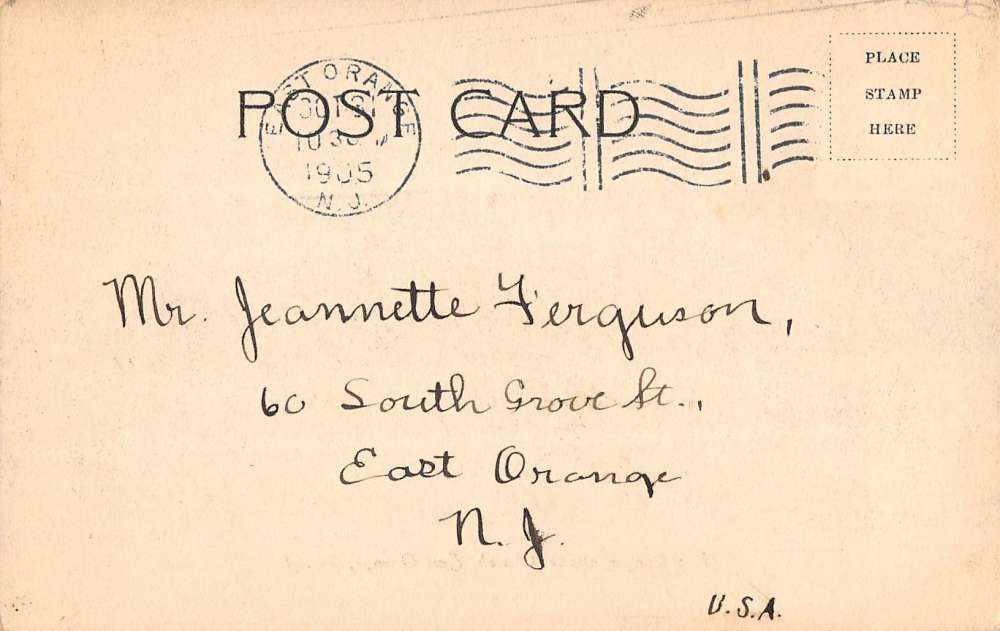 POST CARD
EAST ORANGE
OCT
10 30
1905
N. J.
PLACE
STAMP
HERE
Mr. Jeannette Ferguson,
60 South Grove St.,
East Orange
N. J.
U.S.A.